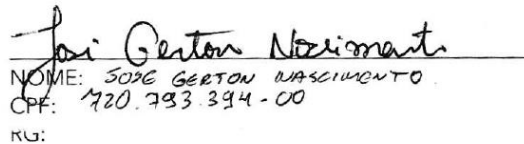 José Gerton Nascimento
NOME: JOSE GERTON NASCIMENTO
CPF: 720.793.394-00
RG: